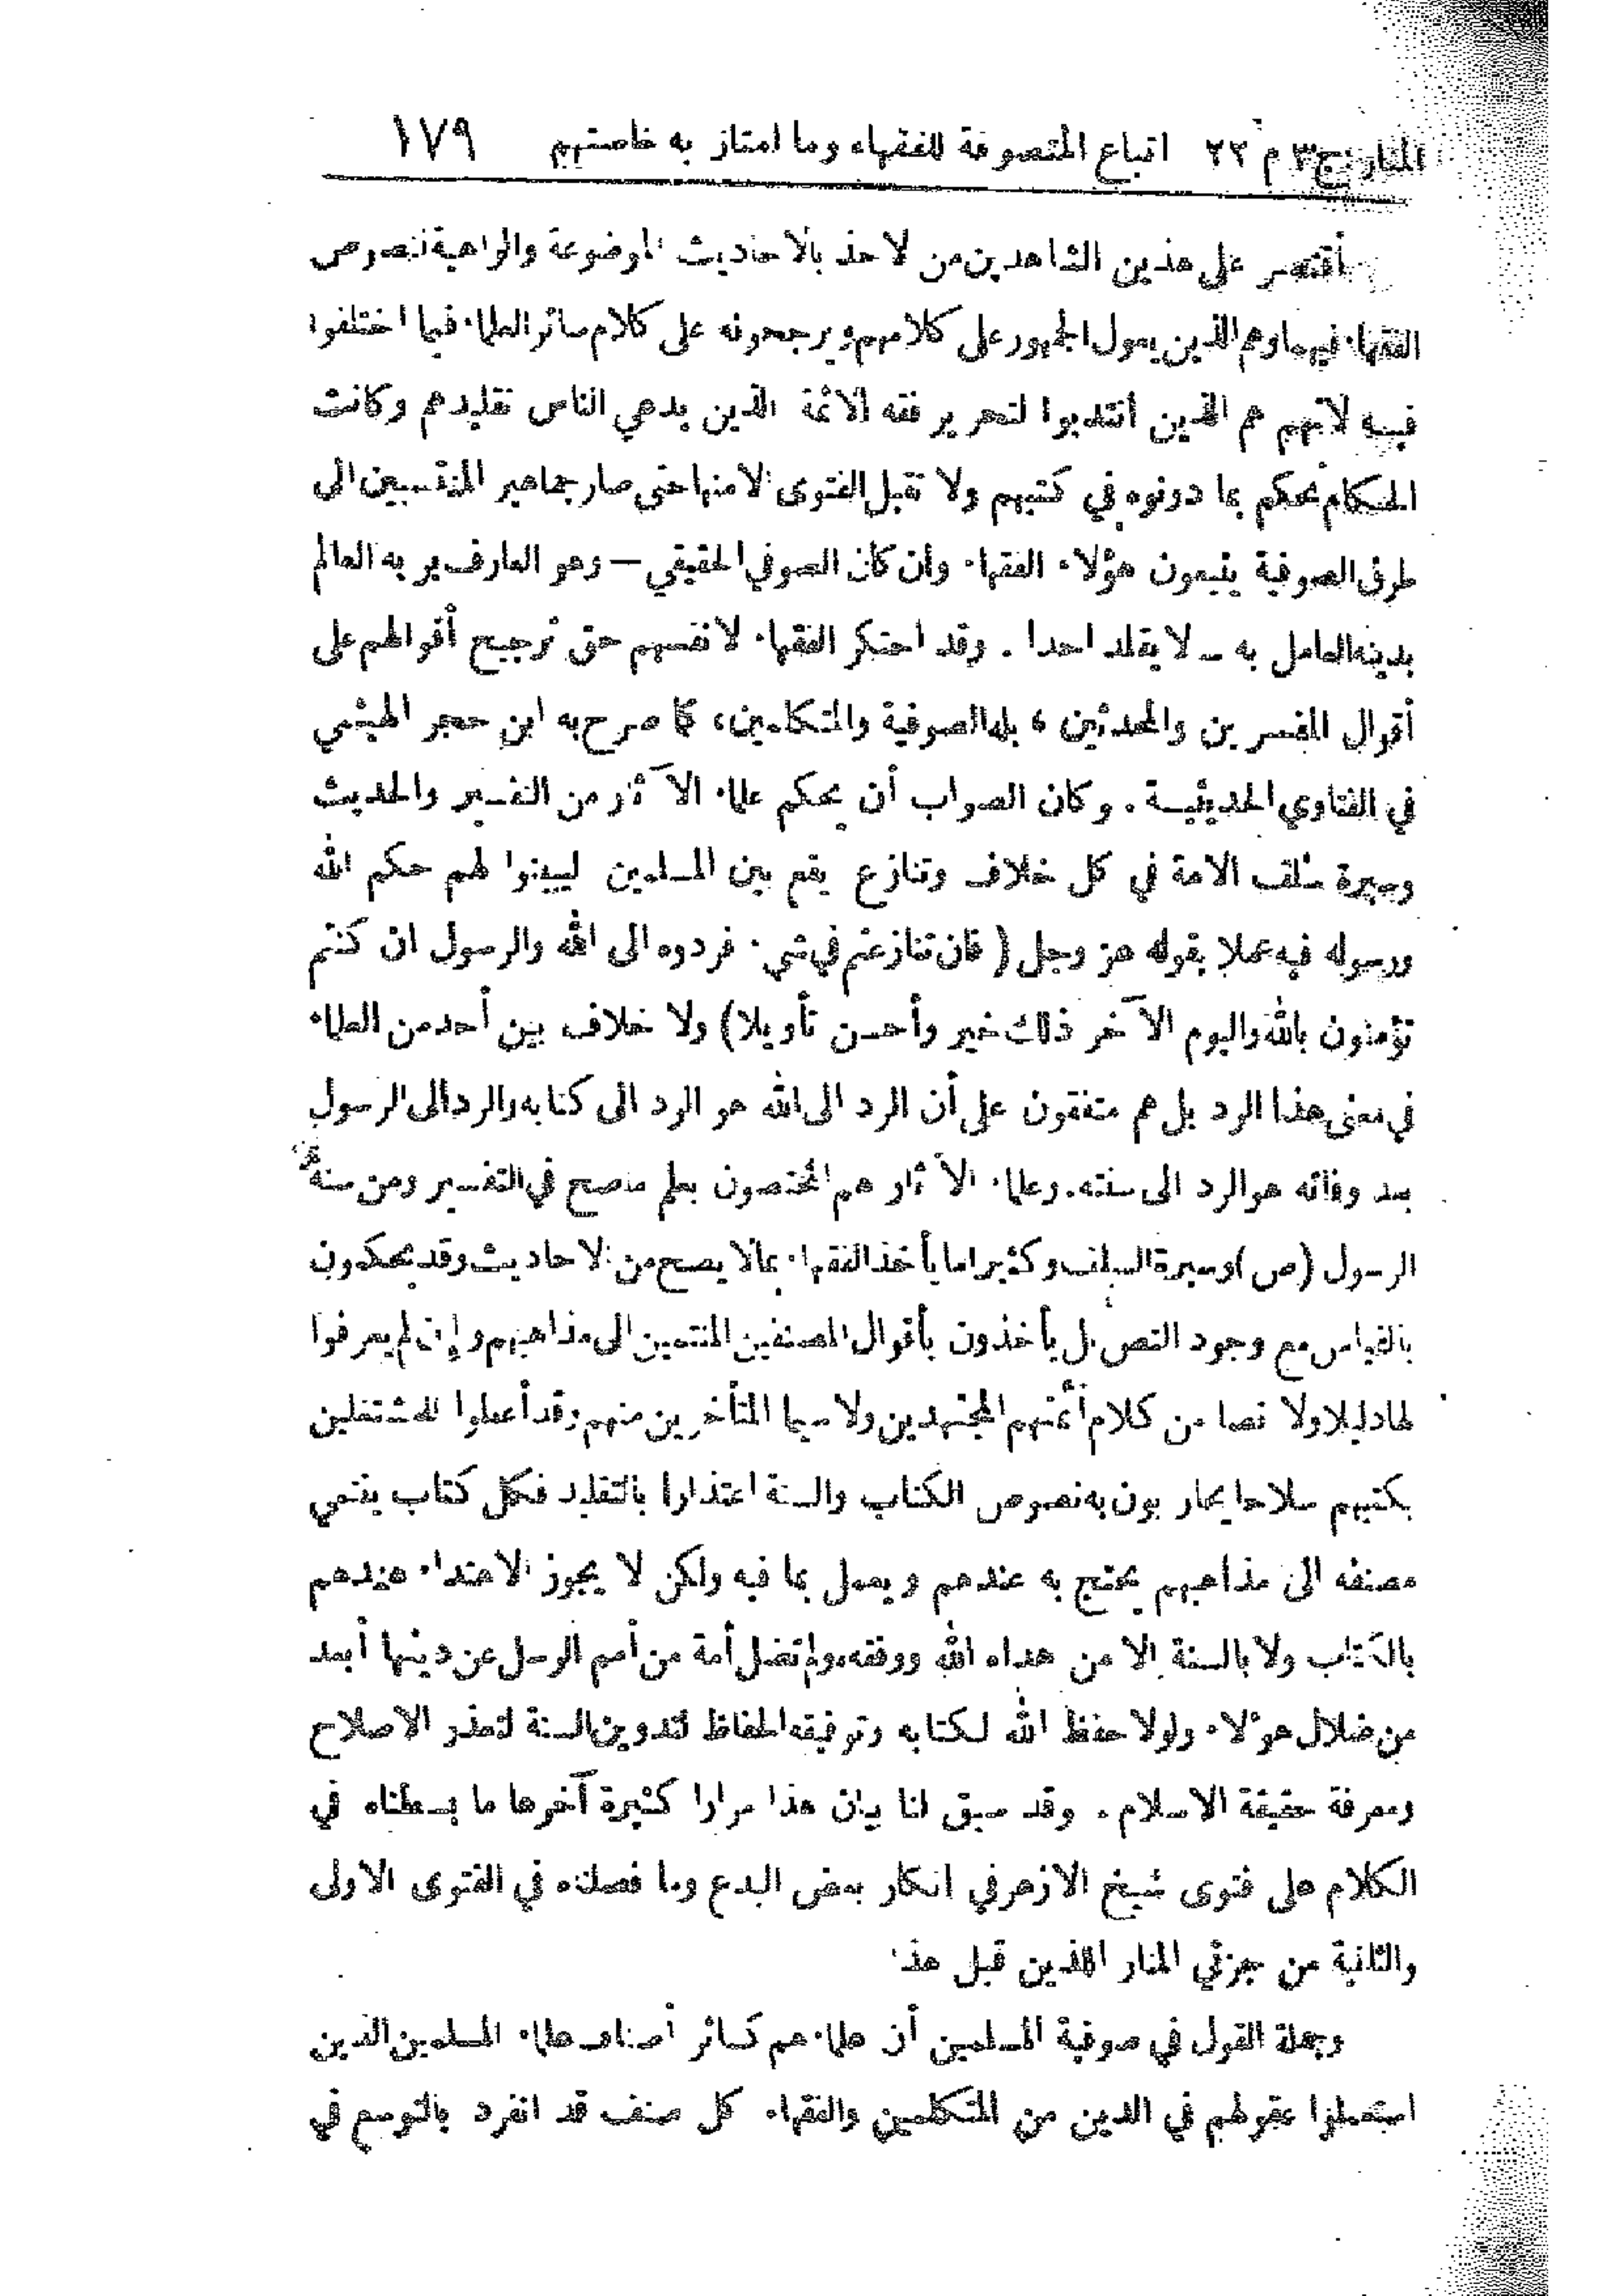 المنار: ج ٣ م ٢٢ اتباع المتصوفة للفقهاء وما امتاز به خاصتهم ١٧٩
أقتصر على هذين الشاهدين من لاخذ بالاحاديث الموضوعة والواهية نصوص
الفقهاء فيهما وهم الذين يعول الجمهور على كلامهم ويرجحونه على كلام سائر العلماء فيما اختلفوا
فيه لانهم هم الذين انتدبوا لتحرير فقه الائمة الذين يدعي الناس تقليدهم وكانت
الحكام تحكم بما دونوه في كتبهم ولا تقبل الفتوى الا منها حتى صار جماهير المنتسبين الى
طرق الصوفية يتبعون هؤلاء الفقهاء وان كان الصوفي الحقيقي — وهو العارف بربه العالم
بدينه العامل به — لا يقلد احدا . وقد احتكر الفقهاء لانفسهم حق ترجيح أقوالهم على
أقوال المفسرين والمحدثين ، بله الصوفية والمتكلمين ، كما صرح به ابن حجر الهيثمي
في الفتاوي الحديثية . وكان الصواب أن يحكم علماء الآثار من التفسير والحديث
وسيرة سلف الامة في كل خلاف وتنازع يقع بين المسلمين ليبينوا لهم حكم الله
ورسوله فيه عملا بقوله عز وجل ( فان تنازعتم في شيء فردوه الى الله والرسول ان كنتم
تؤمنون بالله واليوم الآخر ذلك خير وأحسن تأويلا ) ولا خلاف بين أحد من العلماء
في معنى هذا الرد بل هم متفقون على أن الرد الى الله هو الرد الى كتابه والرد الى الرسول
بعد وفاته هو الرد الى سنته . وعلماء الآثار هم المختصون بعلم ما صح في التفسير ومن سنة
الرسول (ص) وسيرة السلف وكثيرا ما يأخذ الفقهاء بما لا يصح من الاحاديث وقد يحكمون
بالقياس مع وجود النص بل يأخذون بأقوال المصنفين المنتمين الى مذاهبهم وإن لم يعرفوا
لها دليلا ولا نصا من كلام أئمتهم المجتهدين ولا سيما المتأخرين منهم وقد أعطوا المشتغلين
بكتبهم سلاحا يحاربون به نصوص الكتاب والسنة اعتذارا بالتقليد فكل كتاب ينتمي
مصنفه الى مذاهبهم يحتج به عندهم ويعمل بما فيه ولكن لا يجوز الاهتداء عندهم
بالكتاب ولا بالسنة الا من هداه الله ووفقه ولم تضل أمة من أمم الرسل عن دينها أبعد
من ضلال هؤلاء ولولا حفظ الله لكتابه وتوفيقه الحفاظ لتدوين السنة لتعذر الاصلاح
ومعرفة حقيقة الاسلام . وقد سبق لنا بيان هذا مرارا كثيرة آخرها ما بسطناه في
الكلام على فتوى شيخ الازهر في انكار بعض البدع وما فصلناه في الفتوى الاولى
والثانية من جزئي المنار اللذين قبل هذا
وجملة القول في صوفية المسلمين أن علماءهم كسائر أصناف علماء المسلمين الذين
استعملوا عقولهم في الدين من المتكلمين والفقهاء كل صنف قد انفرد بالتوسع في